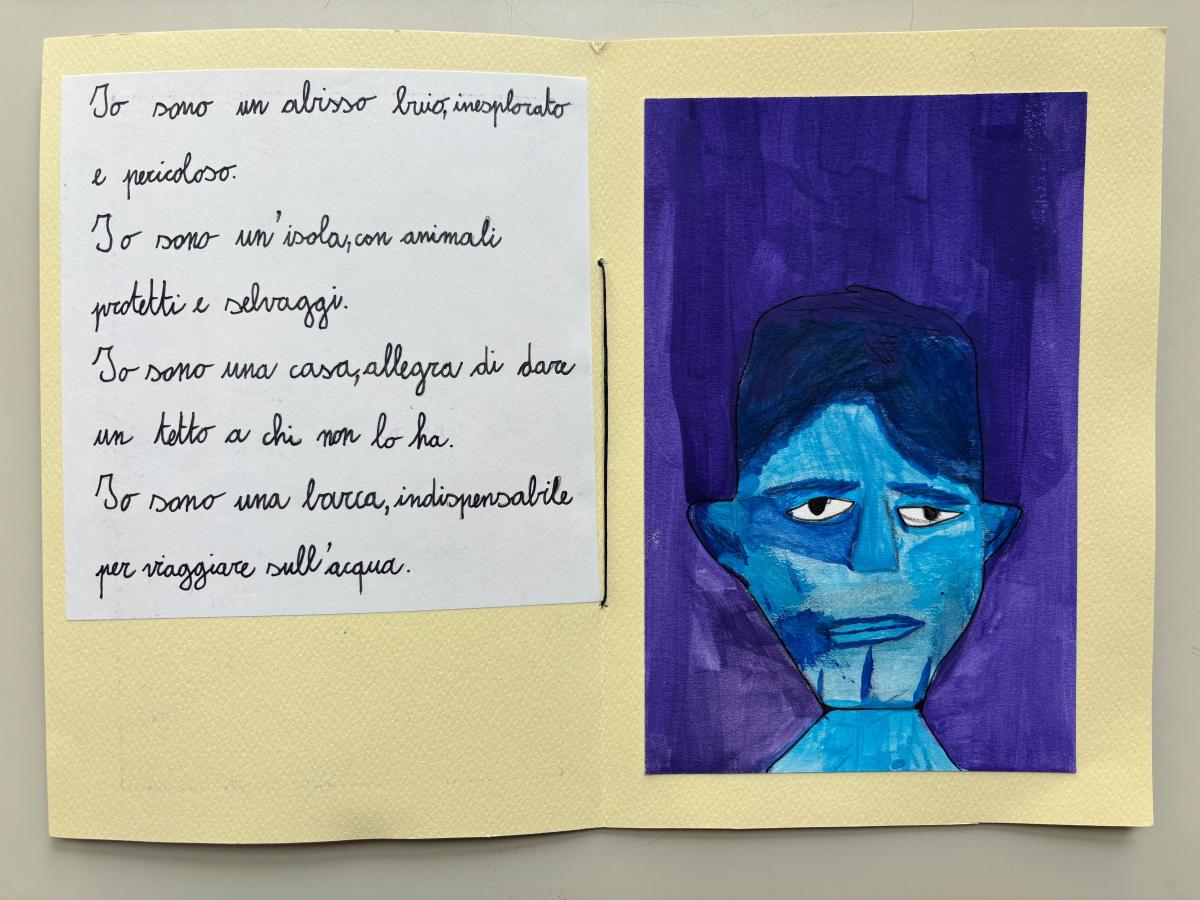 Io sono un abisso buio, inesplorato
e pericoloso.
Io sono un'isola, con animali
protetti e selvaggi.
Io sono una casa, allegra di dare
un tetto a chi non lo ha.
Io sono una barca, indispensabile
per viaggiare sull'acqua.